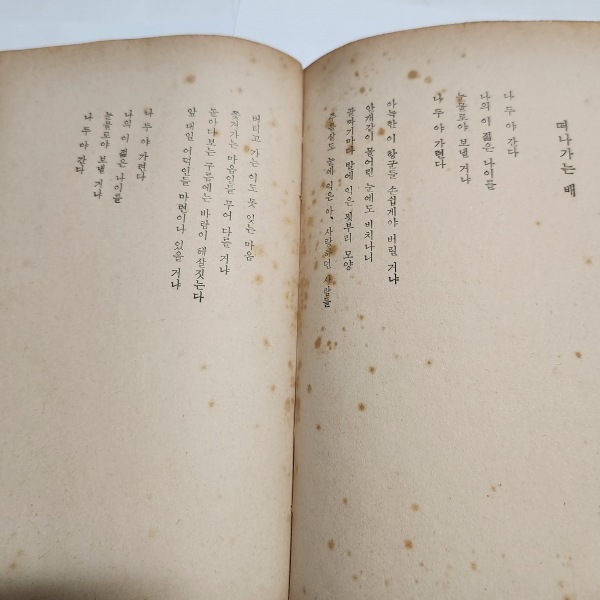 떠나가는 배
나 두 야 간다
나의 이 젊은 나이를
눈물로야 보낼 거냐
나 두 야 가련다
아늑한 이 항군들 손쉽게야 버릴 거냐
안개같이 물어린 눈에도 비치나니
골짜기마다 발에 익은 묏부리 모양
주름살도 눈에 익은 아, 사랑하던 사람들
버리고 가는 이도 못 잊는 마음
쫓겨가는 마음인들 무어 다를 거냐
돌아다보는 구름에는 바람이 헤살짓는다
앞 대일 어덕인들 마련이나 있을 거냐
나 두 야 가련다
나의 이 젊은 나이를
눈물로야 보낼 거냐
나 두 야 간다